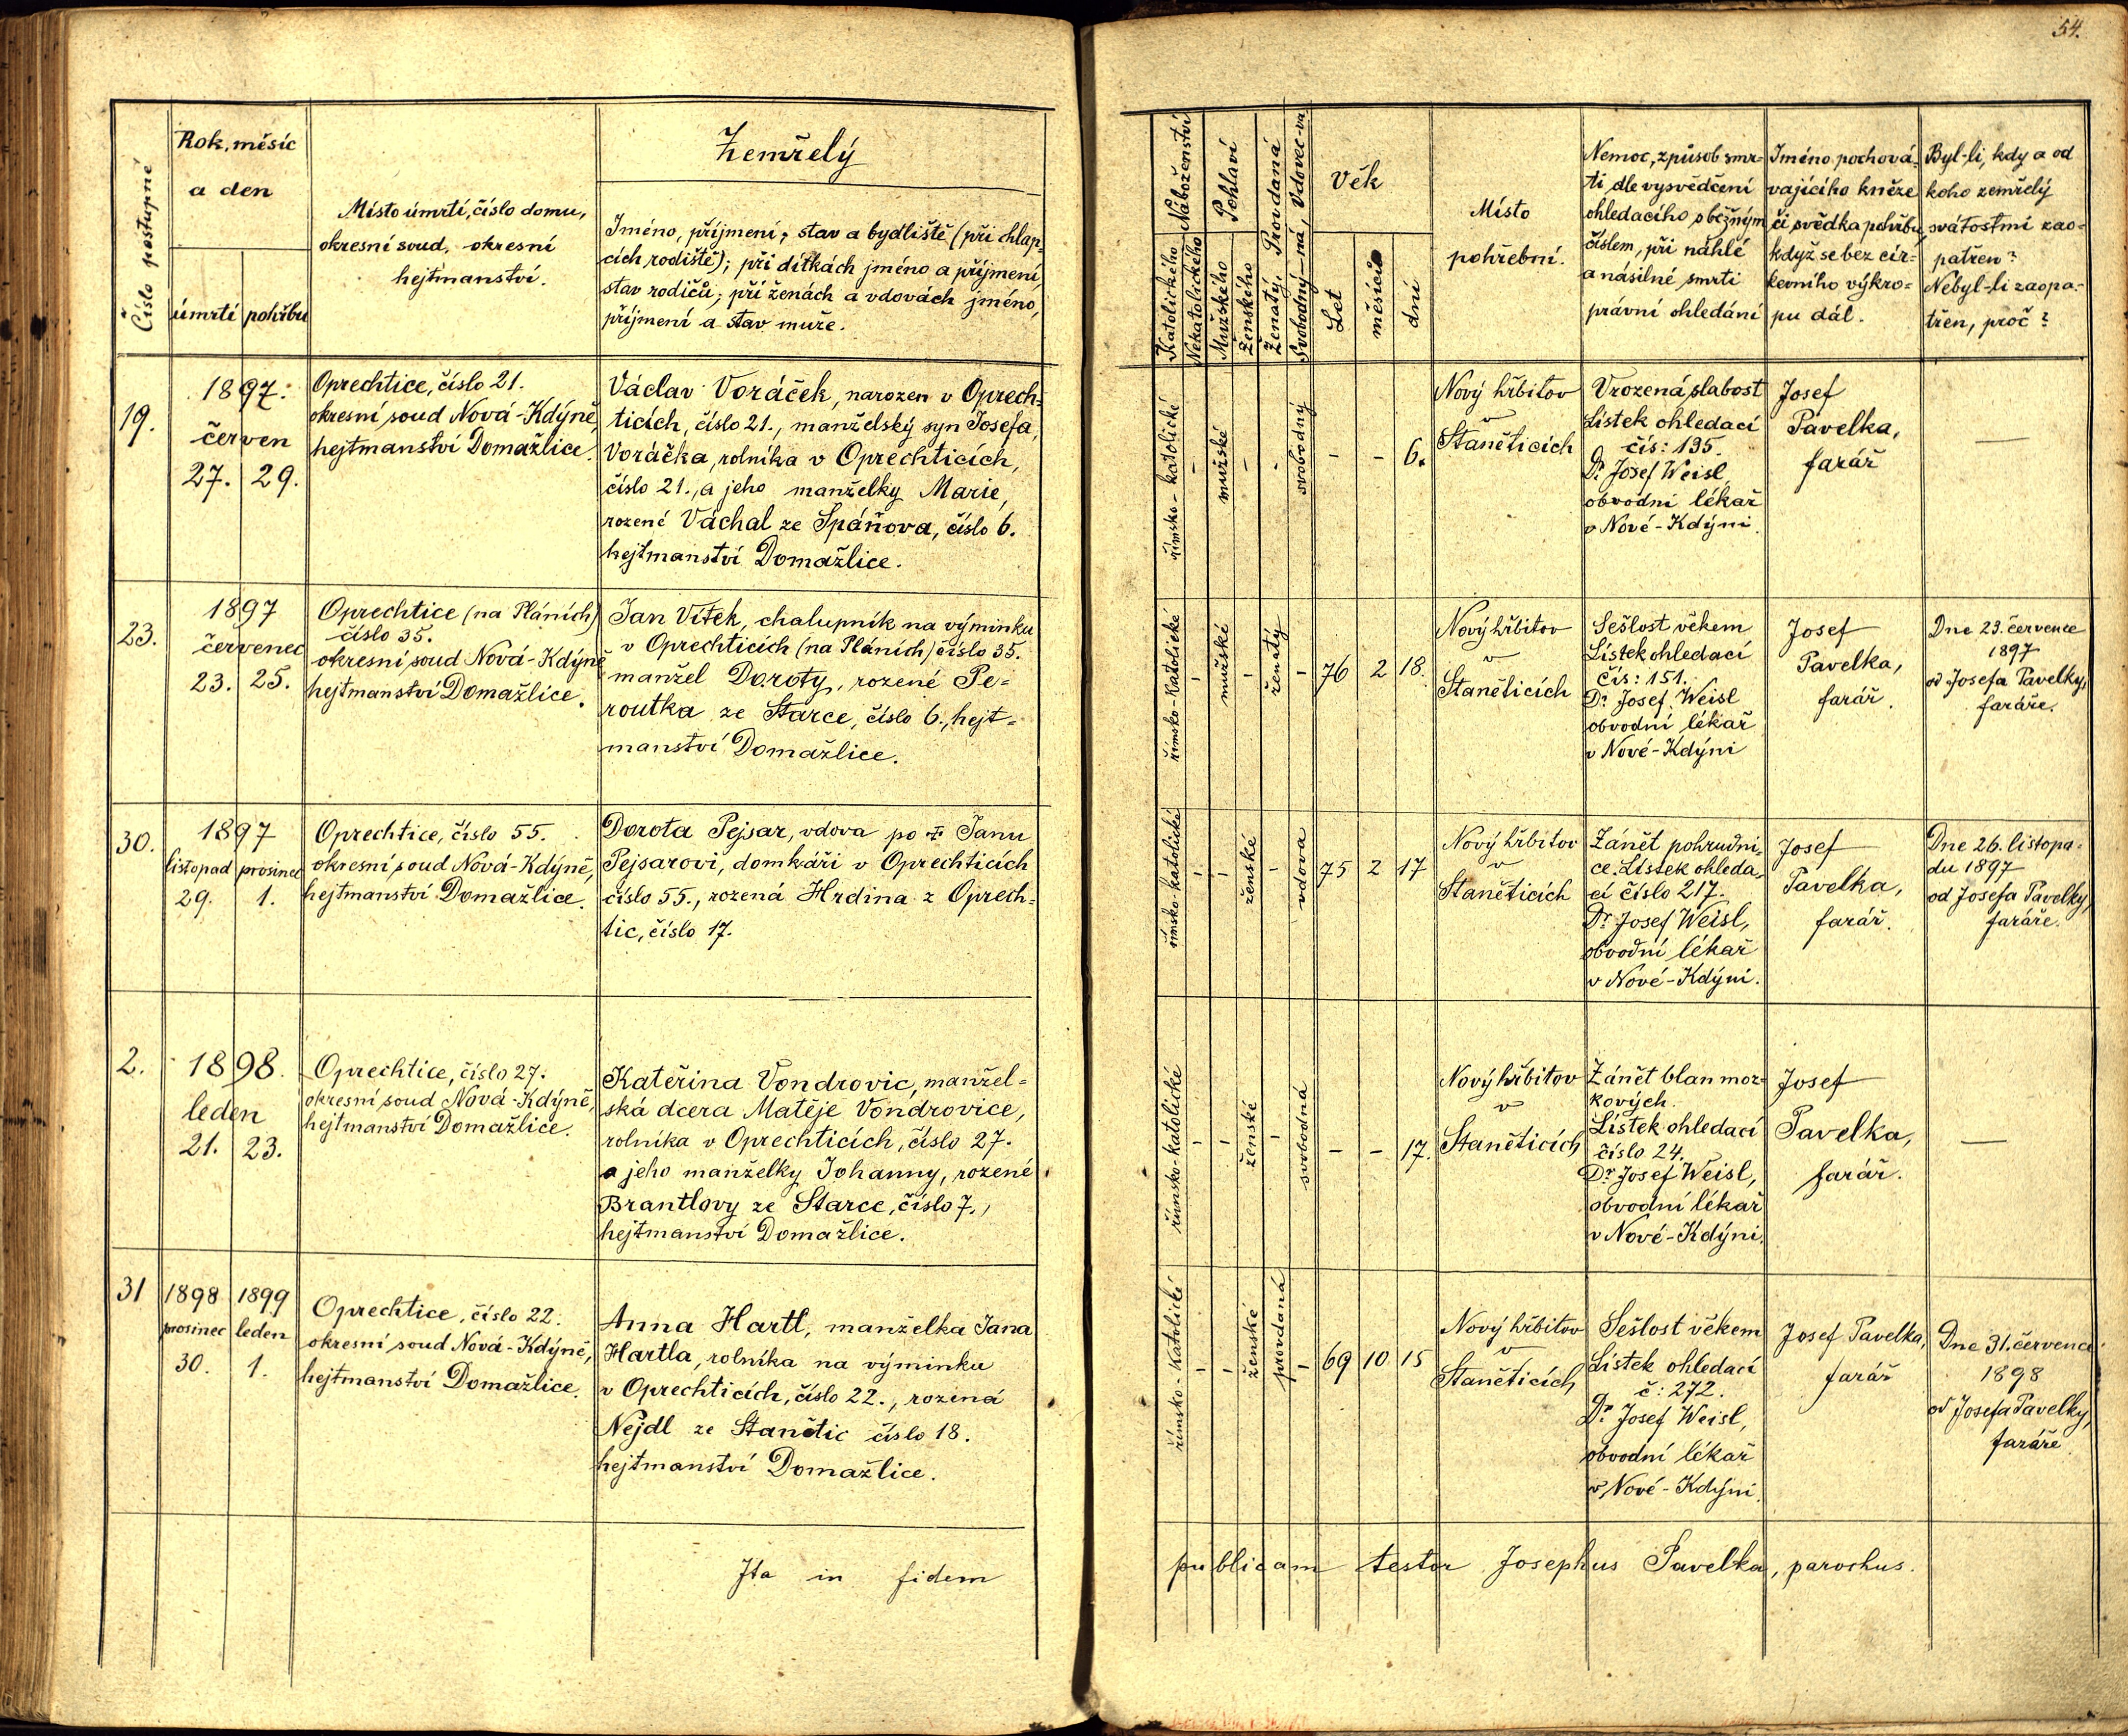 54.
Číslo postupné
Rok, měsíc
a den
úmrtí
pohřbu
Místo úmrtí, číslo domu,
okresní soud, okresní
hejtmanství.
Zemřelý
Jméno, příjmení, stav a bydliště (při chlap-
cích rodiště); při dítkách jméno a příjmení,
stav rodičů; při ženách a vdovách jméno,
příjmení a stav muže.
Náboženství
Katolického
Nekatolického
Pohlaví
Mužského
Ženského
Ženatý, Provdaná
Svobodný-ná, Vdovec-va
Věk
Let
měsíců
dní
Místo
pohřební.
Nemoc, způsob smr-
ti dle vysvědčení
ohledacího s běžným
číslem, při náhlé
a násilné smrti
právní ohledání
Jméno pochová-
vajícího kněze
či svědka pohřbu,
když se bez cír-
kevního výkro-
pu dál.
Byl-li, kdy a od
koho zemřelý
svátostmi zao-
patřen?
Nebyl-li zaopa-
třen, proč?
19.
1897.
červen
27. 29.
Oprechtice, číslo 21.
okresní soud Nová-Kdýně,
hejtmanství Domažlice.
Václav Voráček, narozen v Oprech-
ticích, číslo 21., manželský syn Josefa
Voráčka, rolníka v Oprechticích,
číslo 21., a jeho manželky Marie,
rozené Váchal ze Spáňova, číslo 6.
hejtmanství Domažlice.
římsko-katolické
-
mužské
-
-
svobodný
- - 6.
Nový hřbitov
v
Staněticích
Vrozená slabost
Lístek ohledací
čís: 135.
Dr Josef Weisl,
obvodní lékař
v Nové-Kdýni.
Josef
Pavelka,
farář
—
23.
1897
červenec
23. 25.
Oprechtice (na Pláních)
číslo 35.
okresní soud Nová-Kdýně
hejtmanství Domažlice.
Jan Vítek, chalupník na výminku
v Oprechticích (na Pláních) číslo 35.
manžel Doroty, rozené Pe-
routka ze Starce, číslo 6., hejt-
manství Domažlice.
římsko-katolické
-
mužské
-
ženatý
-
76 2 18.
Nový hřbitov
v
Staněticích
Sešlost věkem
Lístek ohledací
čís: 151.
Dr Josef Weisl
obvodní lékař
v Nové-Kdýni
Josef
Pavelka,
farář.
Dne 23. července
1897
od Josefa Pavelky,
faráře.
30.
1897
listopad prosinec
29. 1.
Oprechtice, číslo 55.
okresní soud Nová-Kdýně,
hejtmanství Domažlice.
Dorota Pejsar, vdova po † Janu
Pejsarovi, domkáři v Oprechticích
číslo 55., rozená Hrdina z Oprech-
tic, číslo 17.
římsko-katolické
-
-
ženské
-
vdova
75 2 17
Nový hřbitov
v
Staněticích
Zánět pohrudni-
ce. Lístek ohleda-
cí číslo 217.
Dr Josef Weisl,
obvodní lékař
v Nové-Kdýni.
Josef
Pavelka,
farář.
Dne 26. listopa-
du 1897
od Josefa Pavelky,
faráře.
2.
1898.
leden
21. 23.
Oprechtice, číslo 27.
okresní soud Nová-Kdýně,
hejtmanství Domažlice.
Kateřina Vondrovic, manžel-
ská dcera Matěje Vondrovice,
rolníka v Oprechticích, číslo 27.
a jeho manželky Johanny, rozené
Brantlovy ze Starce, číslo 7.,
hejtmanství Domažlice.
římsko-katolické
-
-
ženské
-
svobodná
- - 17.
Nový hřbitov
v
Staněticích
Zánět blan moz-
kových.
Lístek ohledací
číslo 24.
Dr Josef Weisl,
obvodní lékař
v Nové-Kdýni.
Josef
Pavelka,
farář.
—
31
1898 1899
prosinec leden
30. 1.
Oprechtice, číslo 22.
okresní soud Nová-Kdýně,
hejtmanství Domažlice.
Anna Hartl, manželka Jana
Hartla, rolníka na výminku
v Oprechticích, číslo 22., rozená
Nejdl ze Stanětic číslo 18.
hejtmanství Domažlice.
římsko-katolické
-
-
ženské
provdaná
-
69 10 15
Nový hřbitov
v
Staněticích
Sešlost věkem
Lístek ohledací
č: 272.
Dr Josef Weisl,
obvodní lékař
v Nové-Kdýni.
Josef Pavelka,
farář
Dne 31. července
1898
od Josefa Pavelky,
faráře.
Ita in fidem publicam testor Josephus Pavelka, parochus.